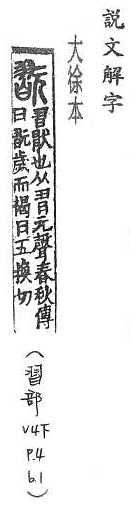 說文解字
大徐本
翫
習猒也从習元聲春秋傳
曰翫歲而愒日五換切
(習部 V4下 P.4 b.1)